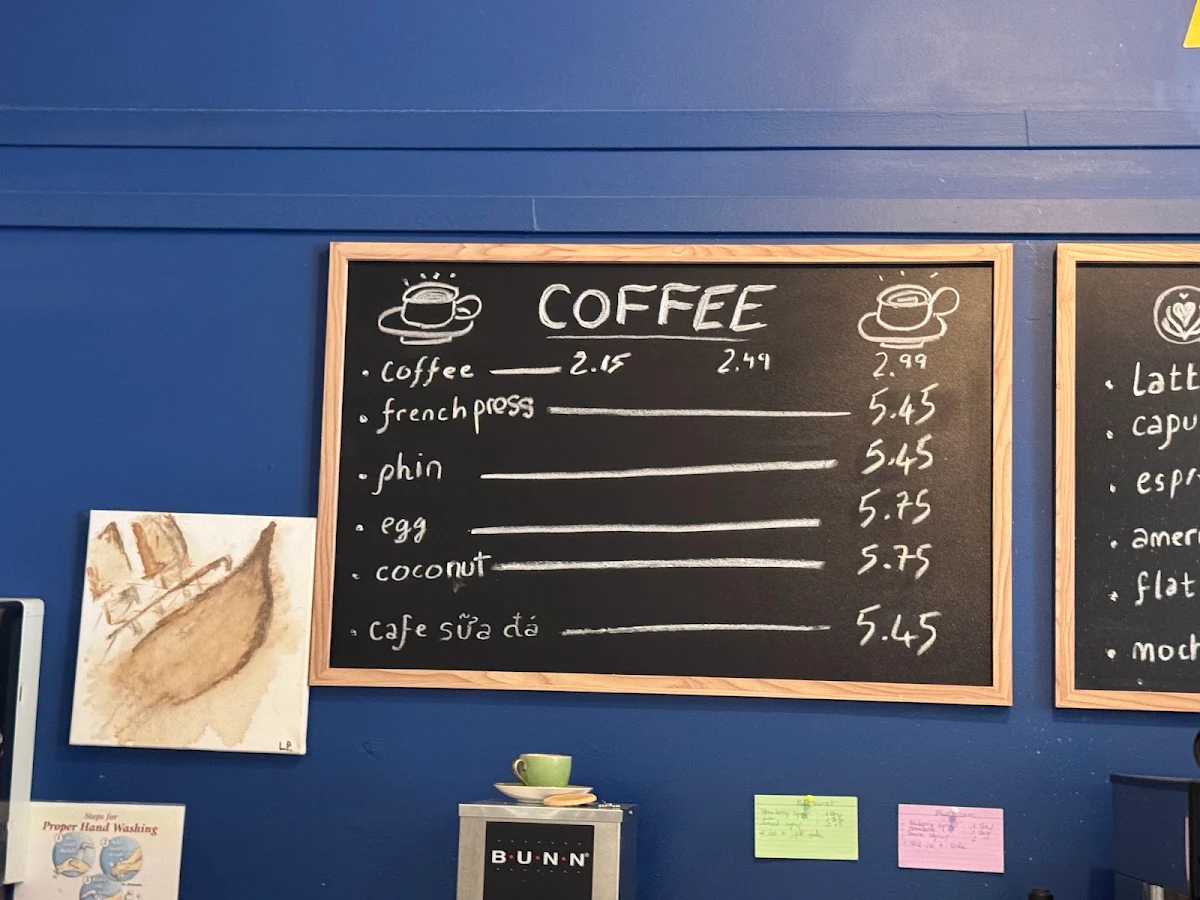 COFFEE
• coffee — 2.15 2.49 2.99
• french press — 5.45
• phin — 5.45
• egg — 5.75
• coconut — 5.75
• cafe sữa đá — 5.45
• Latt
• capu
• espr
• amer
• flat
• moch
L.P.
Steps for
Proper Hand Washing
BUNN